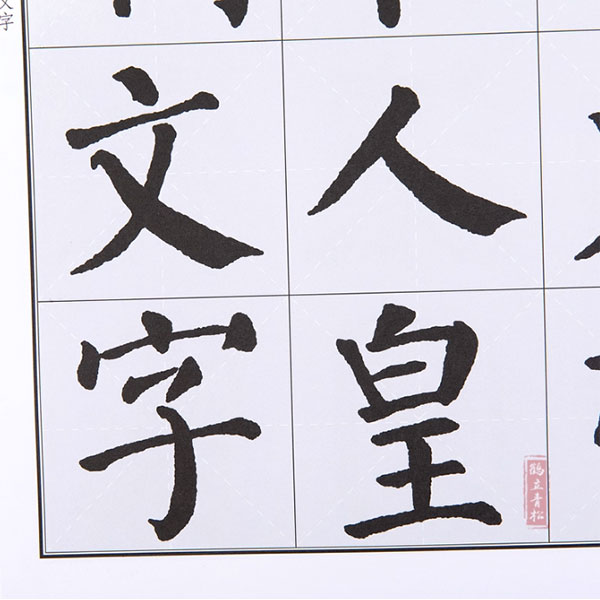 人皇
文字
文字
鶴立青松